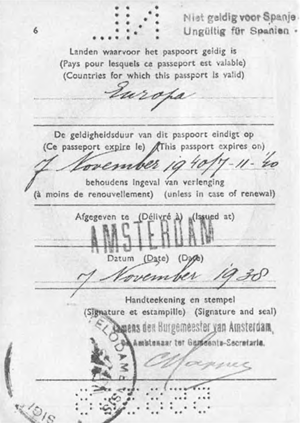 6
NL
Niet geldig voor Spanje
Ungültig für Spanien
Landen waarvoor het paspoort geldig is
(Pays pour lesquels ce passeport est valable)
(Countries for which this passport is valid)
Europa
De geldigheidsduur van dit paspoort eindigt op
(Ce passeport expire le) (This passport expires on)
7 November 1940/7-11-'40
behoudens ingeval van verlenging
(à moins de renouvellement) (unless in case of renewal)
Afgegeven te (Délivré à) (Issued at)
AMSTERDAM
Datum (Date) (Date)
7 November 1938
Handteekening en stempel
(Signature et estampille) (Signature and seal)
Namens den Burgemeester van Amsterdam,
de Ambtenaar ter Gemeente-Secretarie.